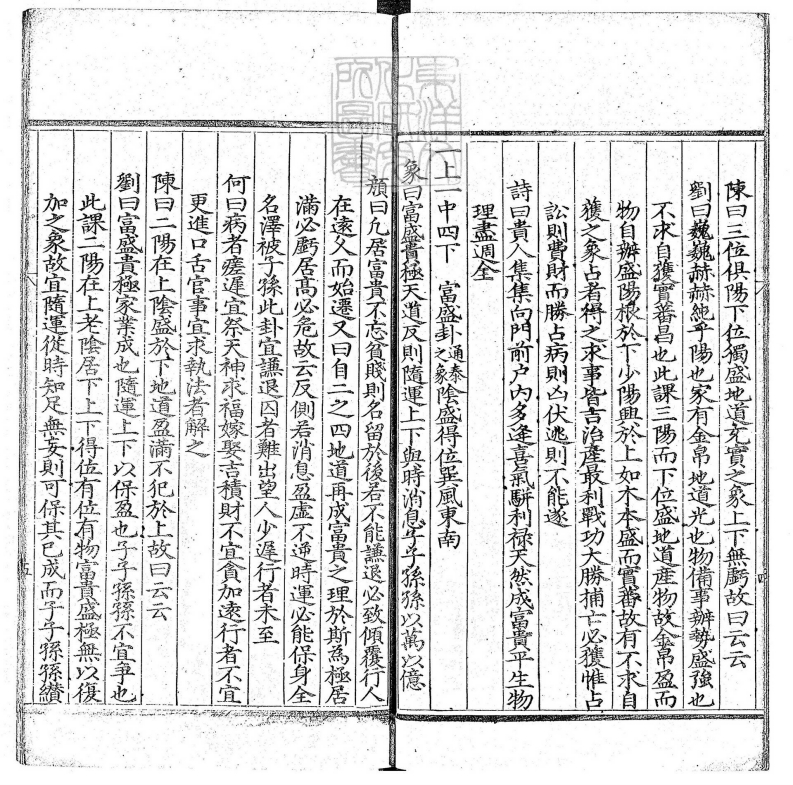 陳曰三位俱陽下位獨盛地道充實之象上下無虧故曰云云
劉曰巍巍赫赫純乎陽也家有金帛地道光也物備事辦勢盛強也
不求自獲實蕃昌也此課三陽而下位盛地道產物故金帛盈而
物自辦盛陽根於下少陽興於上如木本盛而實蕃故有不求自
獲之象占者得之求事皆吉治產最利戰功大勝捕亡必獲惟占
訟則費財而勝占病則凶伏逃則不能遂
詩曰貴人集集向門前户内多逢喜氣駢利禄天然成富貴平生物
理盡週全
一上一中四下 富盛卦 通泰之象 陰盛得位巽風東南
象曰富盛貴極天道反則隨運上下與時消息子子孫孫以萬以億
顔曰凢居富貴不忘貧賤則名留於後若不能謙退必致傾覆行人
在遠久而始還又曰自二之四地道再成富貴之理於斯為極居
滿必虧居髙必危故云反側若消息盈虛不逆時運必能保身全
名澤被子孫此卦宜謙退囚者難出望人少遲行者未至
何曰病者瘥遲宜祭天神求福嫁娶吉積財不宜貪加遠行者不宜
更進口舌官事宜求執法者解之
陳曰二陽在上陰盛於下地道盈滿不犯於上故曰云云
劉曰富盛貴極家業成也隨運上下以保盈也子子孫孫不宜爭也
此課二陽在上老陰居下上下得位有位有物富貴盛極無以復
加之象故宜隨運從時知足無妄則可保其已成而子子孫孫纘